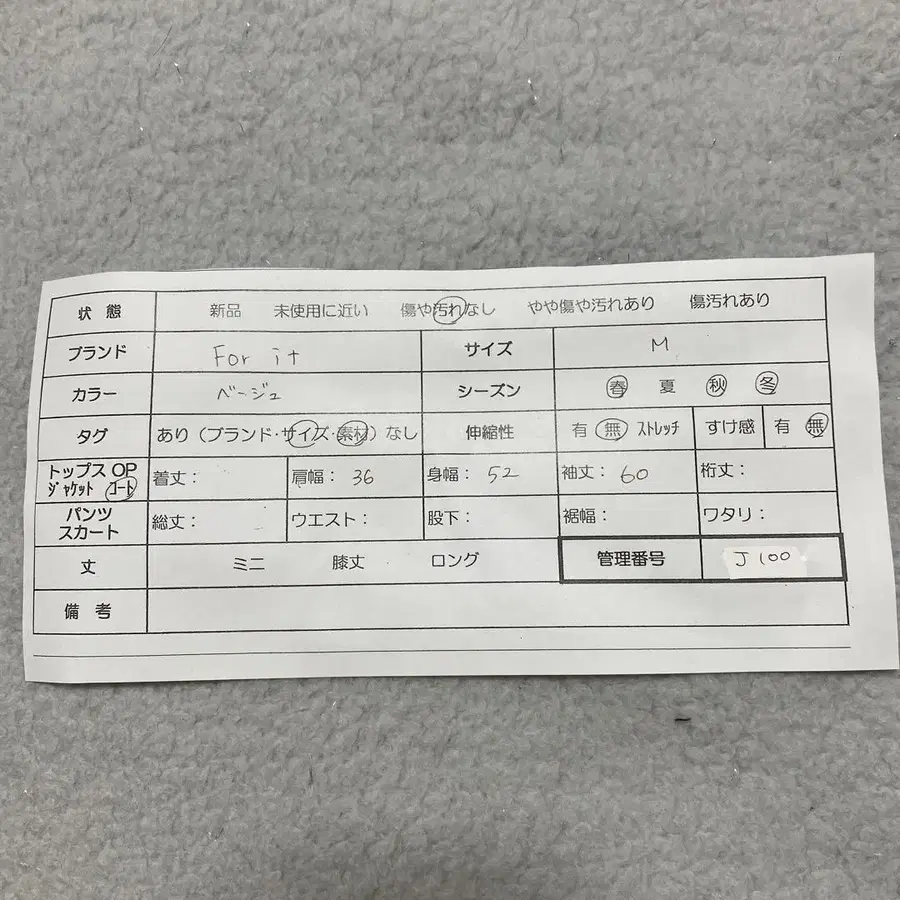 状 態 新品 未使用に近い 傷や汚れなし やや傷や汚れあり 傷汚れあり
ブランド For it サイズ M
カラー ベージュ シーズン 春 夏 秋 冬
タグ あり（ブランド・サイズ・素材）なし 伸縮性 有 無 ストレッチ すけ感 有 無
トップス OP
ジャケット コート 着丈： 肩幅： 36 身幅： 52 袖丈： 60 裄丈：
パンツ
スカート 総丈： ウエスト： 股下： 裾幅： ワタリ：
丈 ミニ 膝丈 ロング 管理番号 J100
備 考